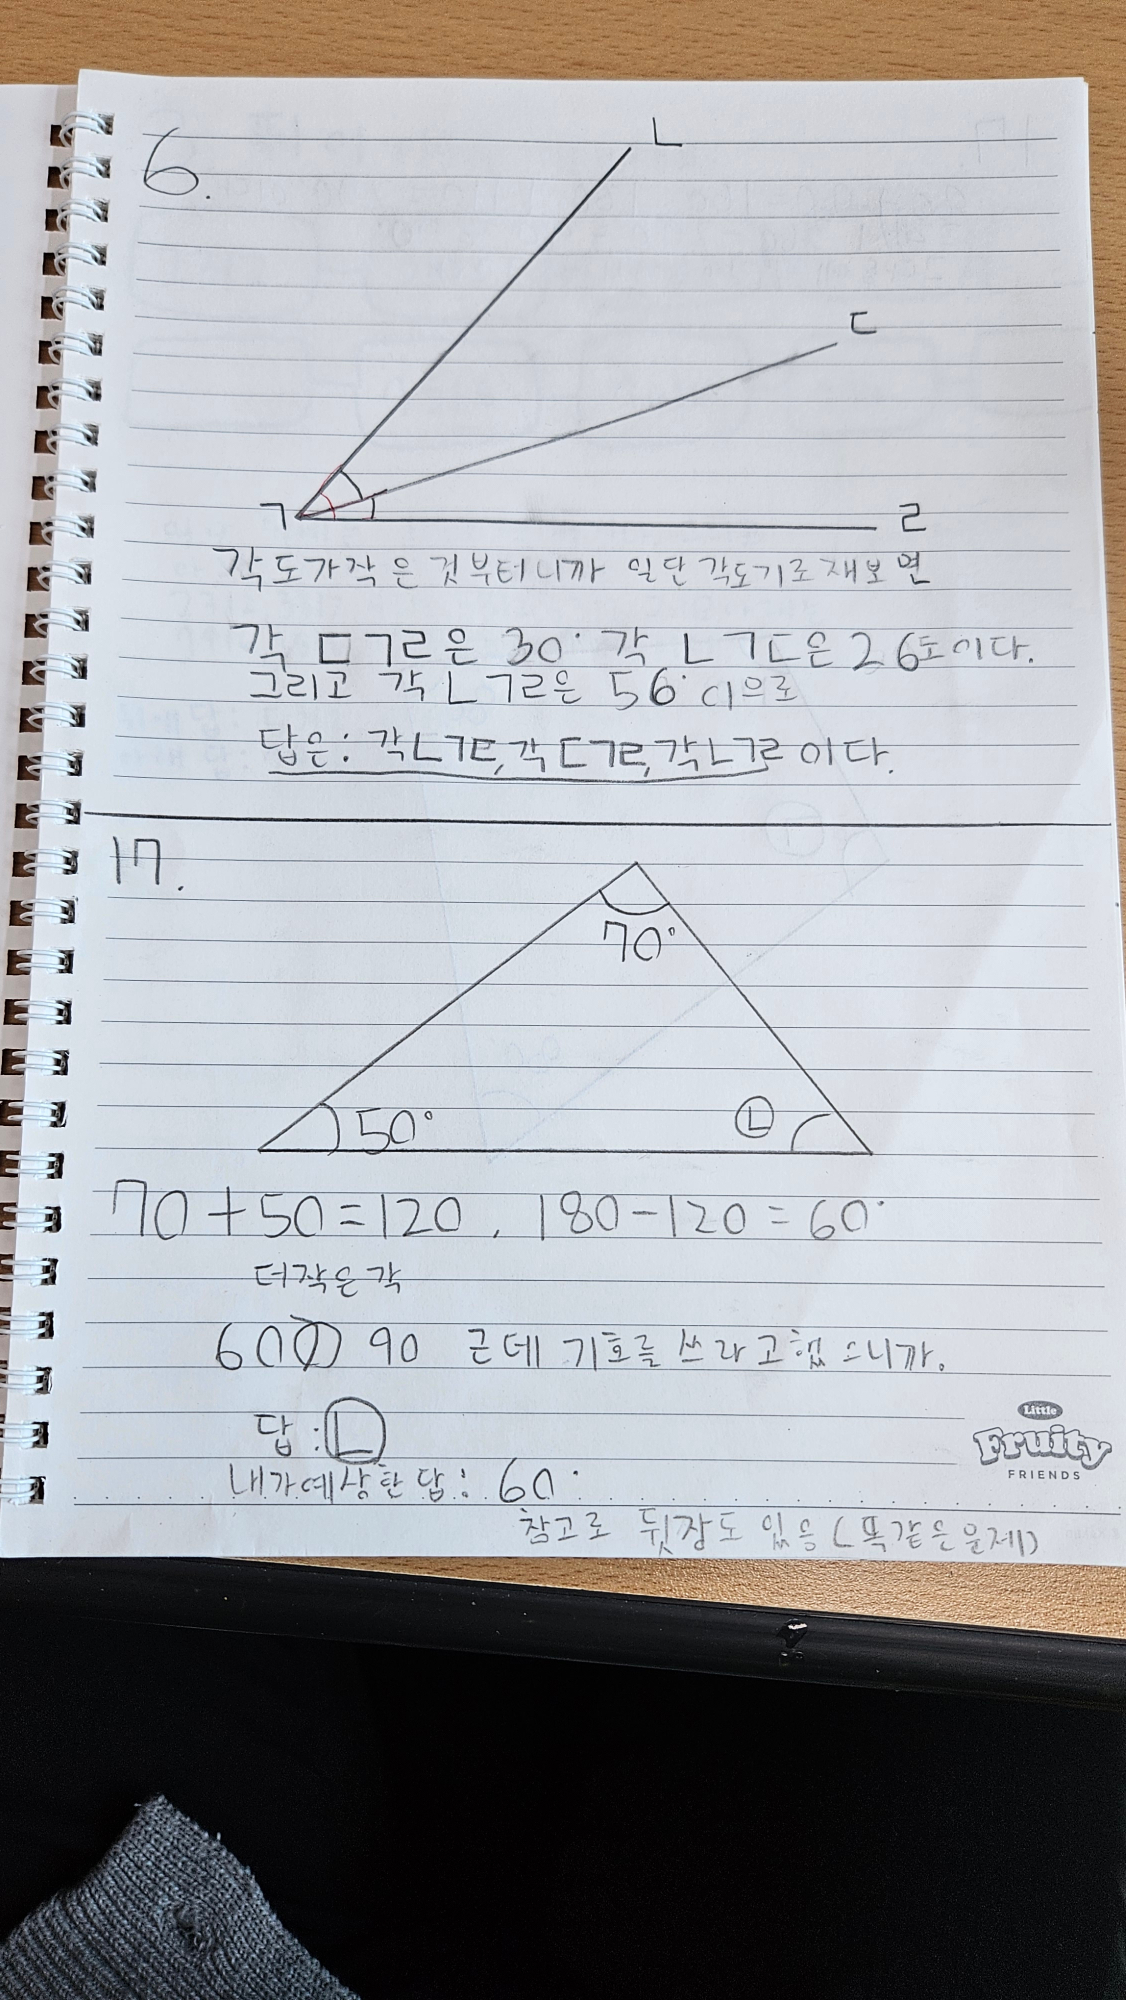 6.
ㄴ
ㄷ
ㄱ
ㄹ
각도가작은것부터니까 일단 각도기로재보면
각 ㄷㄱㄹ은 30° 각 ㄴㄱㄷ은 26도이다.
그리고 각ㄴㄱㄹ은 56°이으로
답은: 각ㄴㄱㄷ, 각ㄷㄱㄹ, 각ㄴㄱㄹ이다.
17.
70°
50°
㉡
70+50=120, 180-120=60°
더작은각
60 90 근데 기호를 쓰라고했으니까.
답: ㉡
내가예상한답: 60°
참고로 뒷장도 있음(똑같은문제)
Little
Fruity
FRIENDS